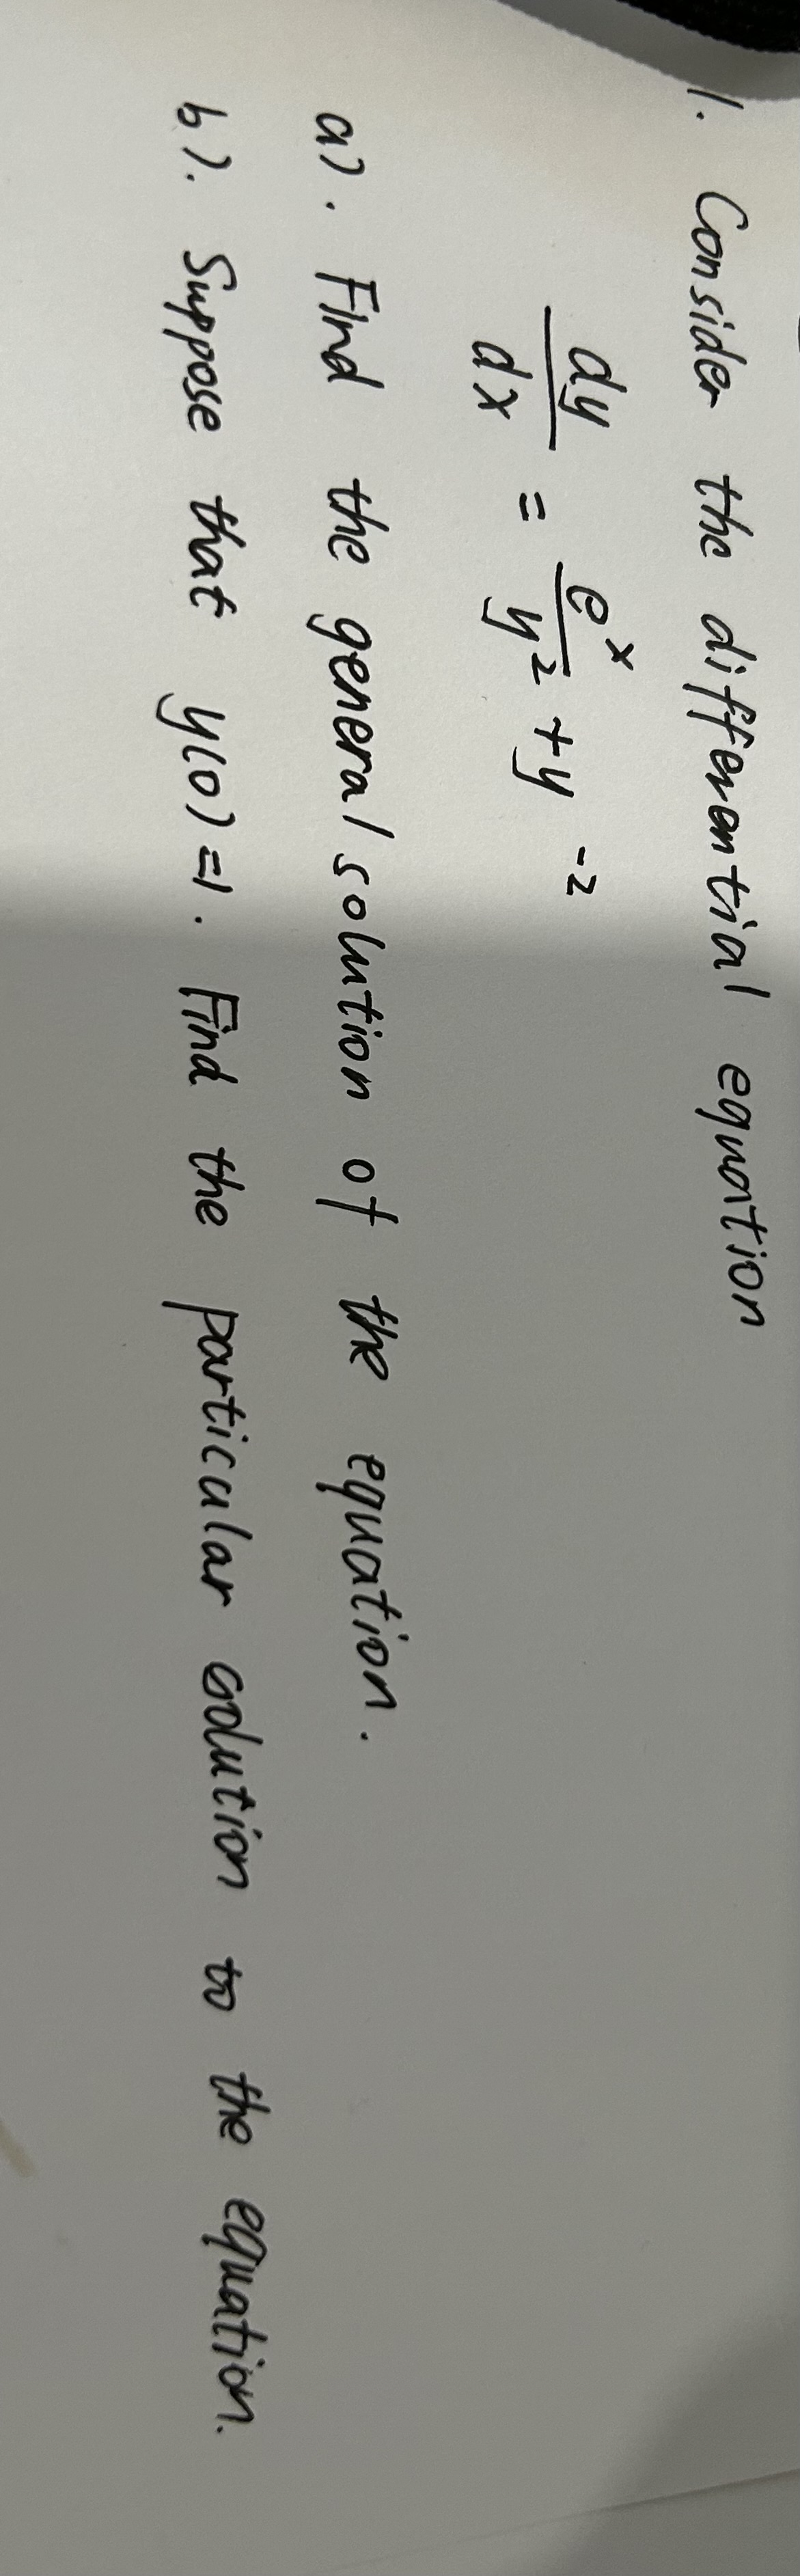 1. Consider the differential equation
dy/dx = e^x/y^2 + y^-2
a). Find the general solution of the equation.
b). Suppose that y(0)=1. Find the particular solution to the equation.